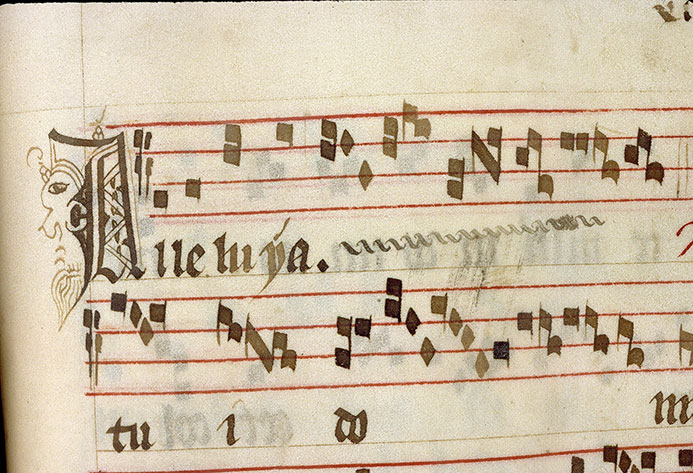 Alleluya.
tu i do